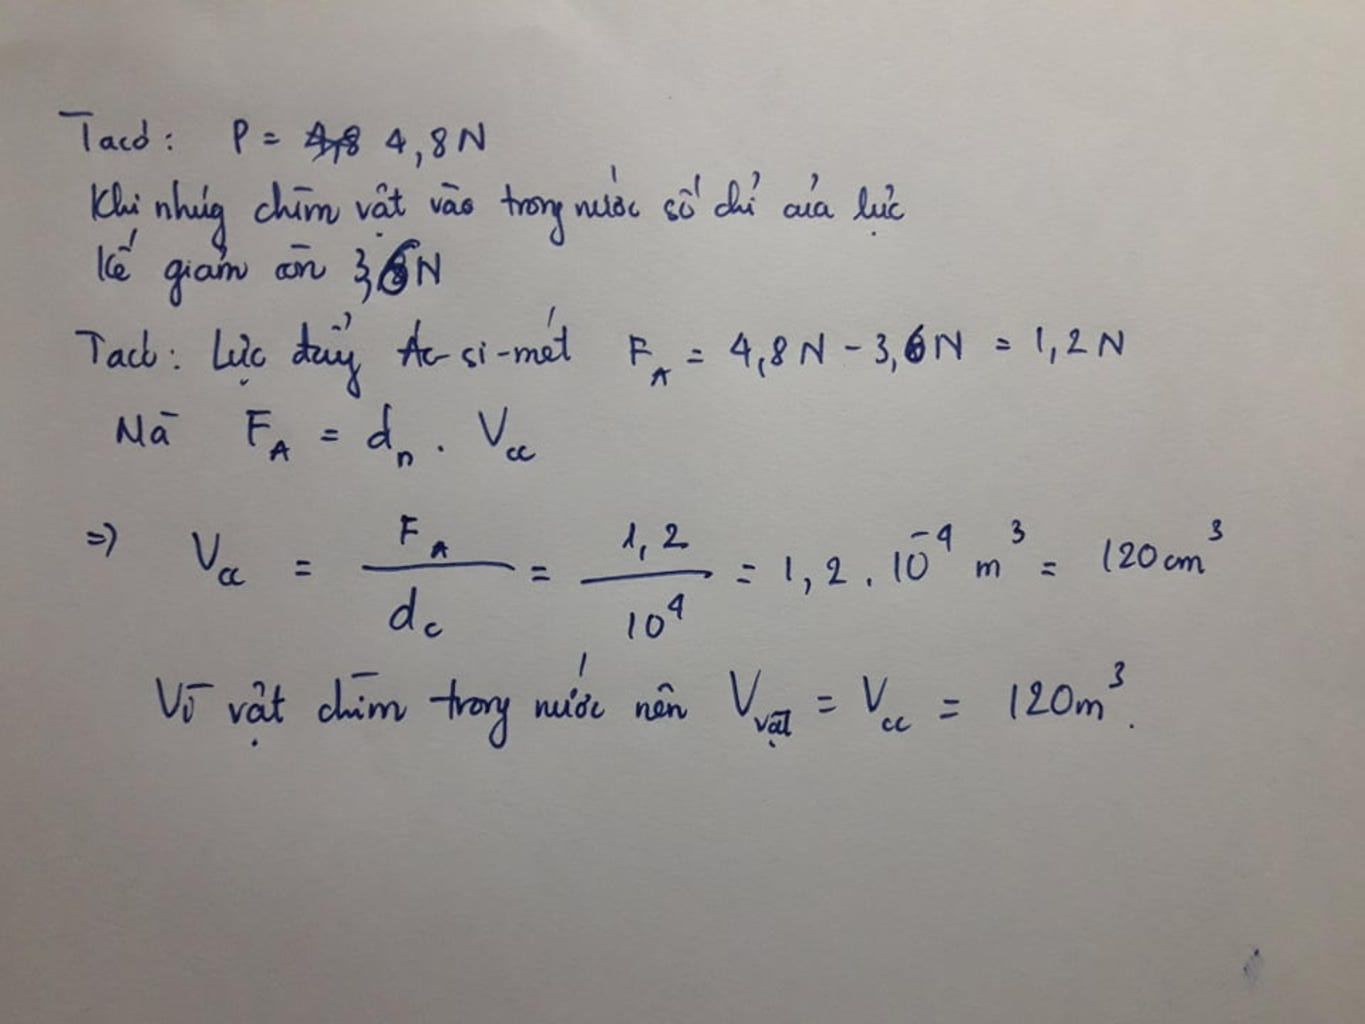 Ta có: P = 4,8 4,8 N
Khi nhúng chìm vật vào trong nước số chỉ của lực
kế giảm còn 3,6N
Ta có: Lực đẩy Ác-si-mét F_A = 4,8 N - 3,6N = 1,2 N
Mà F_A = d_n . V_cc
=> V_cc = F_A / d_c = 1,2 / 10^4 = 1,2 . 10^-4 m^3 = 120 cm^3
Vì vật chìm trong nước nên V_vật = V_cc = 120m^3.